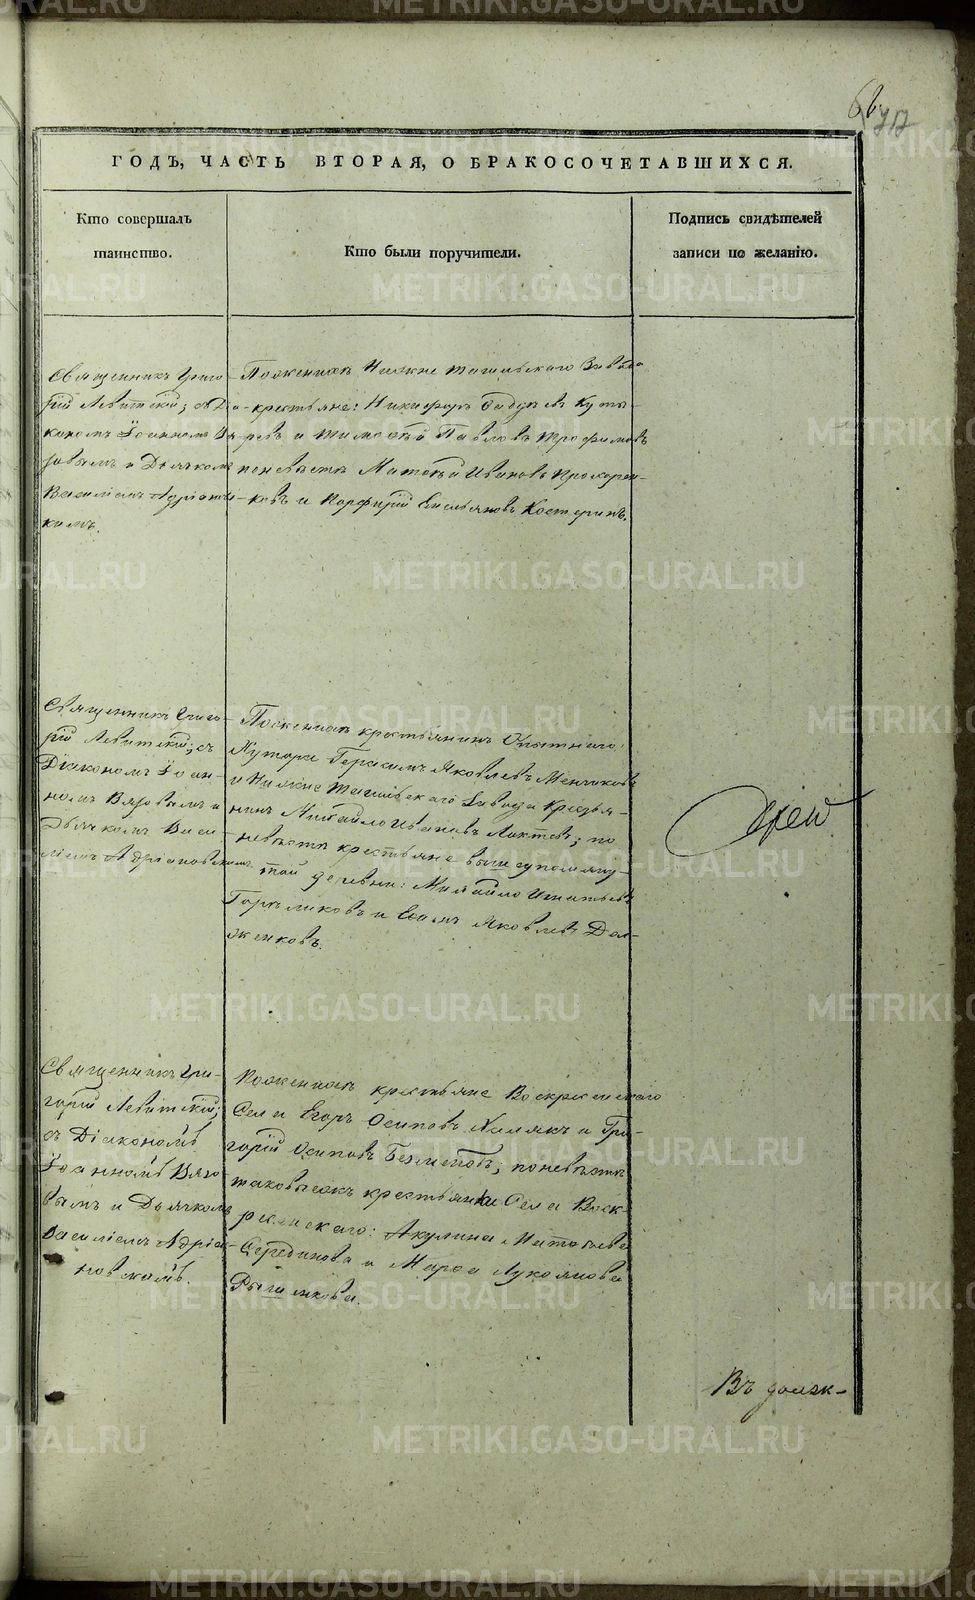 ГОДЪ, ЧАСТЬ ВТОРАЯ, О БРАКОСОЧЕТАВШИХСЯ.
Кто совершалъ
таинство.
Кто были поручители.
Подпись свидѣтелей
записи по желанію.
Священникъ Григо-
рій Левитскій; съ Діа-
кономъ Іоанномъ Вя-
зовымъ и Дьячкомъ
Василіемъ Адріановс-
кимъ.
Поженихѣ Нижне Тагильскаго Завода
крестьяне: Никифоръ
ревъ и Тимофѣй Павловъ Трофимовъ
поневѣстѣ Матвѣй Ивановъ Прохорен-
ковъ и Порфирій Емельяновъ Костеринъ.
Священникъ Григо-
рій Левитскій; съ
Діакономъ Іоан-
номъ Вязовымъ и
Дьячкомъ Васи-
ліемъ Адріановскимъ
Поженихѣ крестьянинъ Опытнаго
Хутора Герасимъ Яковлевъ Меншиковъ
и Нижне Тагильскаго Завода Крестья-
нинъ Михайло Ивановъ Лаптевъ; по
невѣстѣ крестьяне вышеупомяну-
той деревни: Михайло Игнатьевъ
и Яковлевъ Дол-
женковъ.
Священникъ Гри-
горій Левитскій;
съ Діакономъ
Іоанномъ Вязо-
вымъ и Дьячкомъ
Василіемъ Адріа-
новскимъ.
Поженихѣ крестьяне Воскресенскаго
Села Егоръ Осиповъ и Гри-
горій Осиповъ; поневѣстѣ
таковыежъ крестьянки Села Воск-
ресенскаго: Акулина Матвѣева
Середикова и Марѳа Лукоянова
Рышликова.
Въ долж-
METRIKI.GASO-URAL.RU